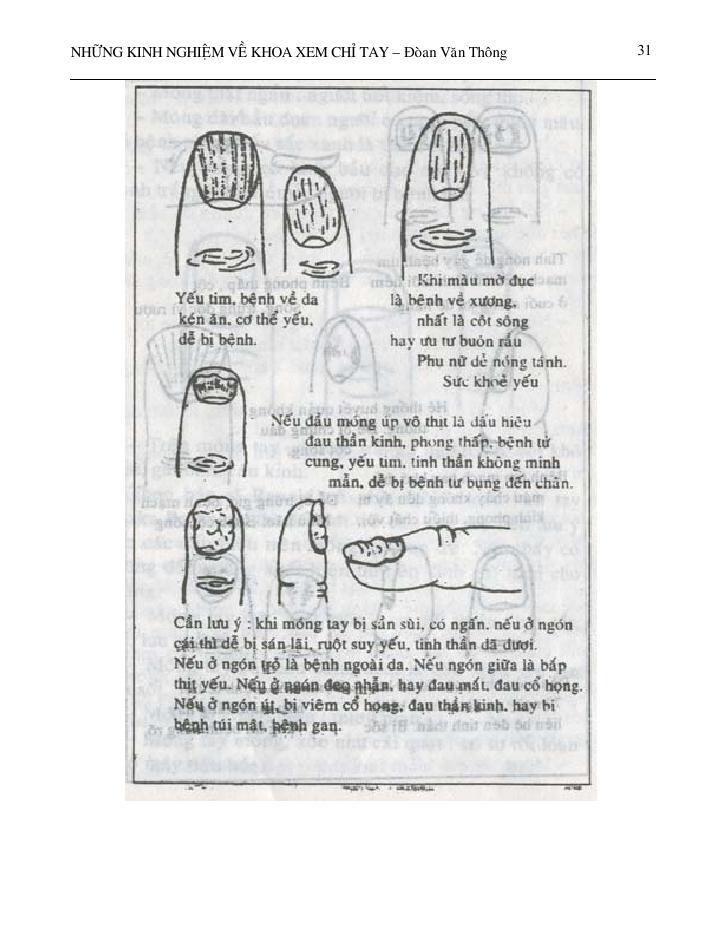 NHỮNG KINH NGHIỆM VỀ KHOA XEM CHỈ TAY – Đòan Văn Thông
31
Yếu tim, bệnh về da
kén ăn, cơ thể yếu,
dễ bị bệnh.
Khi màu mờ đục
là bệnh về xương,
nhất là cột sống
hay ưu tư buồn rầu
Phụ nữ dễ nóng tánh.
Sức khoẻ yếu
Nếu đầu móng úp vô thịt là dấu hiệu
đau thần kinh, phong thấp, bệnh tử
cung, yếu tim, tinh thần không minh
mẫn, dễ bị bệnh từ bụng đến chân.
Cần lưu ý : khi móng tay bị sần sùi, có ngấn, nếu ở ngón
cái thì dễ bị sán lãi, ruột suy yếu, tinh thần dã dượi.
Nếu ở ngón trỏ là bệnh ngoài da. Nếu ngón giữa là bắp
thịt yếu. Nếu ở ngón đeo nhẫn, hay đau mắt, đau cổ họng.
Nếu ở ngón út, bị viêm cổ họng, đau thần kinh, hay bị
bệnh túi mật, bệnh gan.